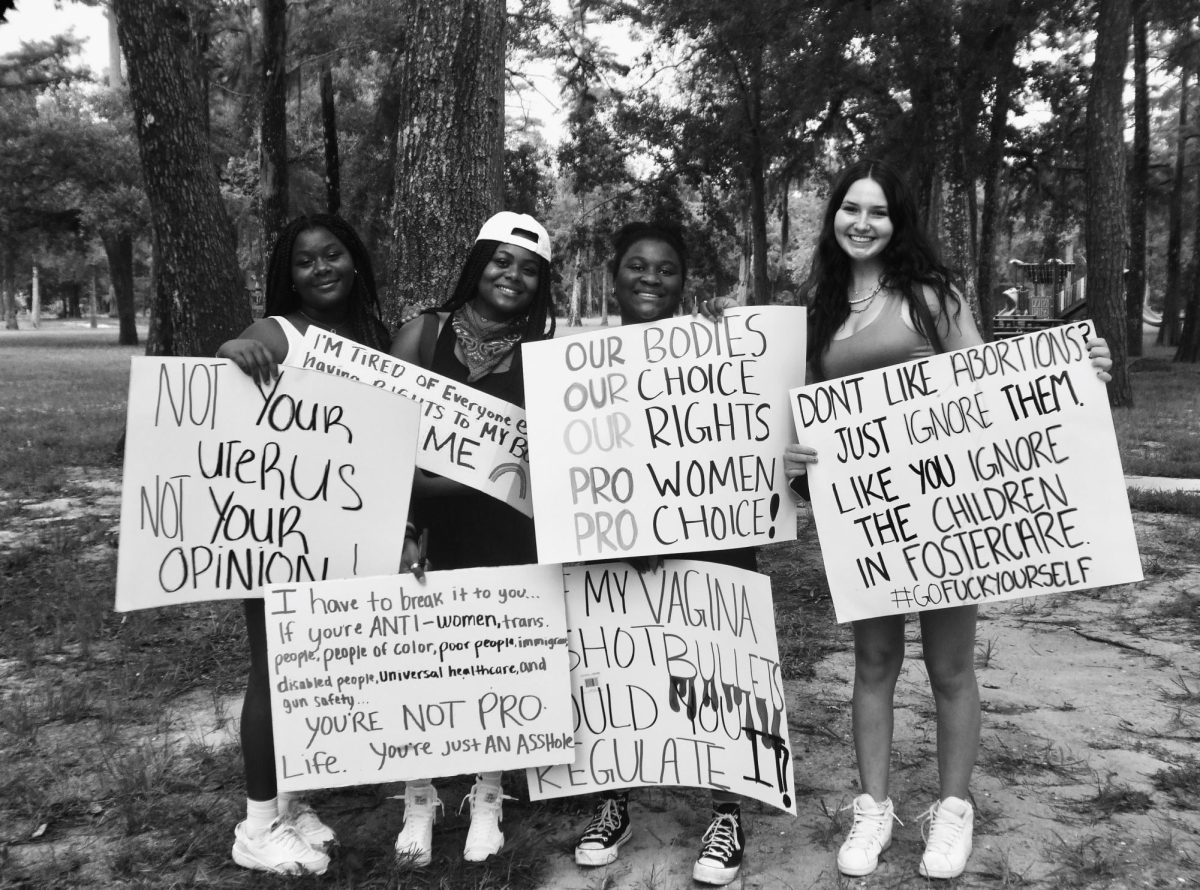 NOT YOUR
UTERUS
NOT YOUR
OPINION!
I'M TIRED OF Everyone
having RIGHTS TO MY
ME
OUR BODIES
OUR CHOICE
OUR RIGHTS
PRO WOMEN
PRO CHOICE!
DONT LIKE ABORTIONS?
JUST IGNORE THEM.
LIKE YOU IGNORE
THE CHILDREN
IN FOSTERCARE.
#GOFUCKYOURSELF
I have to break it to you...
If you're ANTI-women, trans.
people, people of color, poor people,
disabled people, universal healthcare, and
gun safety...
YOU'RE NOT PRO.
Life. You're just AN ASSHole
MY VAGINA
SHOT BULLETS
YOU
REGULATE IT?!